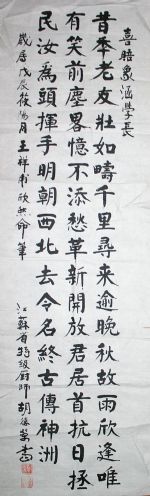 喜晤象涵学長
昔年老友壯如疇千里尋来逾晚秋故雨欣逢唯
有笑前塵畧憶不添愁革新開放君居首抗日拯
民汝爲頭揮手明朝西北去令名終古傳神洲
歲居戊辰後陽月王祥甫欣然命筆
江蘇省特级廚師胡